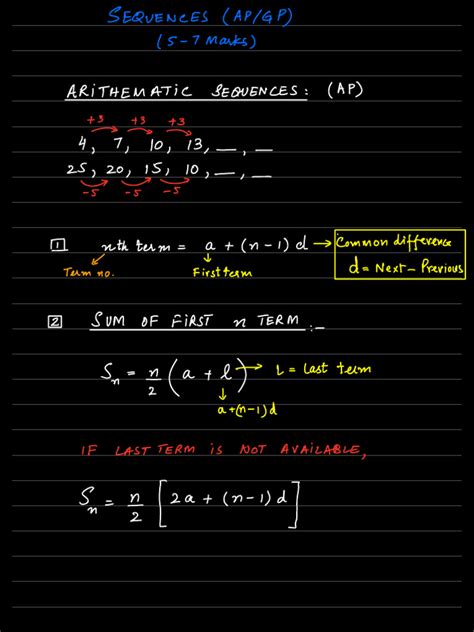 SEQUENCES (AP/GP)
(5-7 Marks)
ARITHEMATIC SEQUENCES: (AP)
+3 +3 +3
4, 7, 10, 13, __, __
25, 20, 15, 10, __, __
-5 -5 -5
1 nth term = a + (n-1) d → Common difference
d = Next - Previous
Term no. First term
2 SUM OF FIRST n TERM :-
Sn = n/2 (a + l) → L = Last term
a+(n-1)d
IF LAST TERM IS NOT AVAILABLE,
Sn = n/2 [2a + (n-1) d]